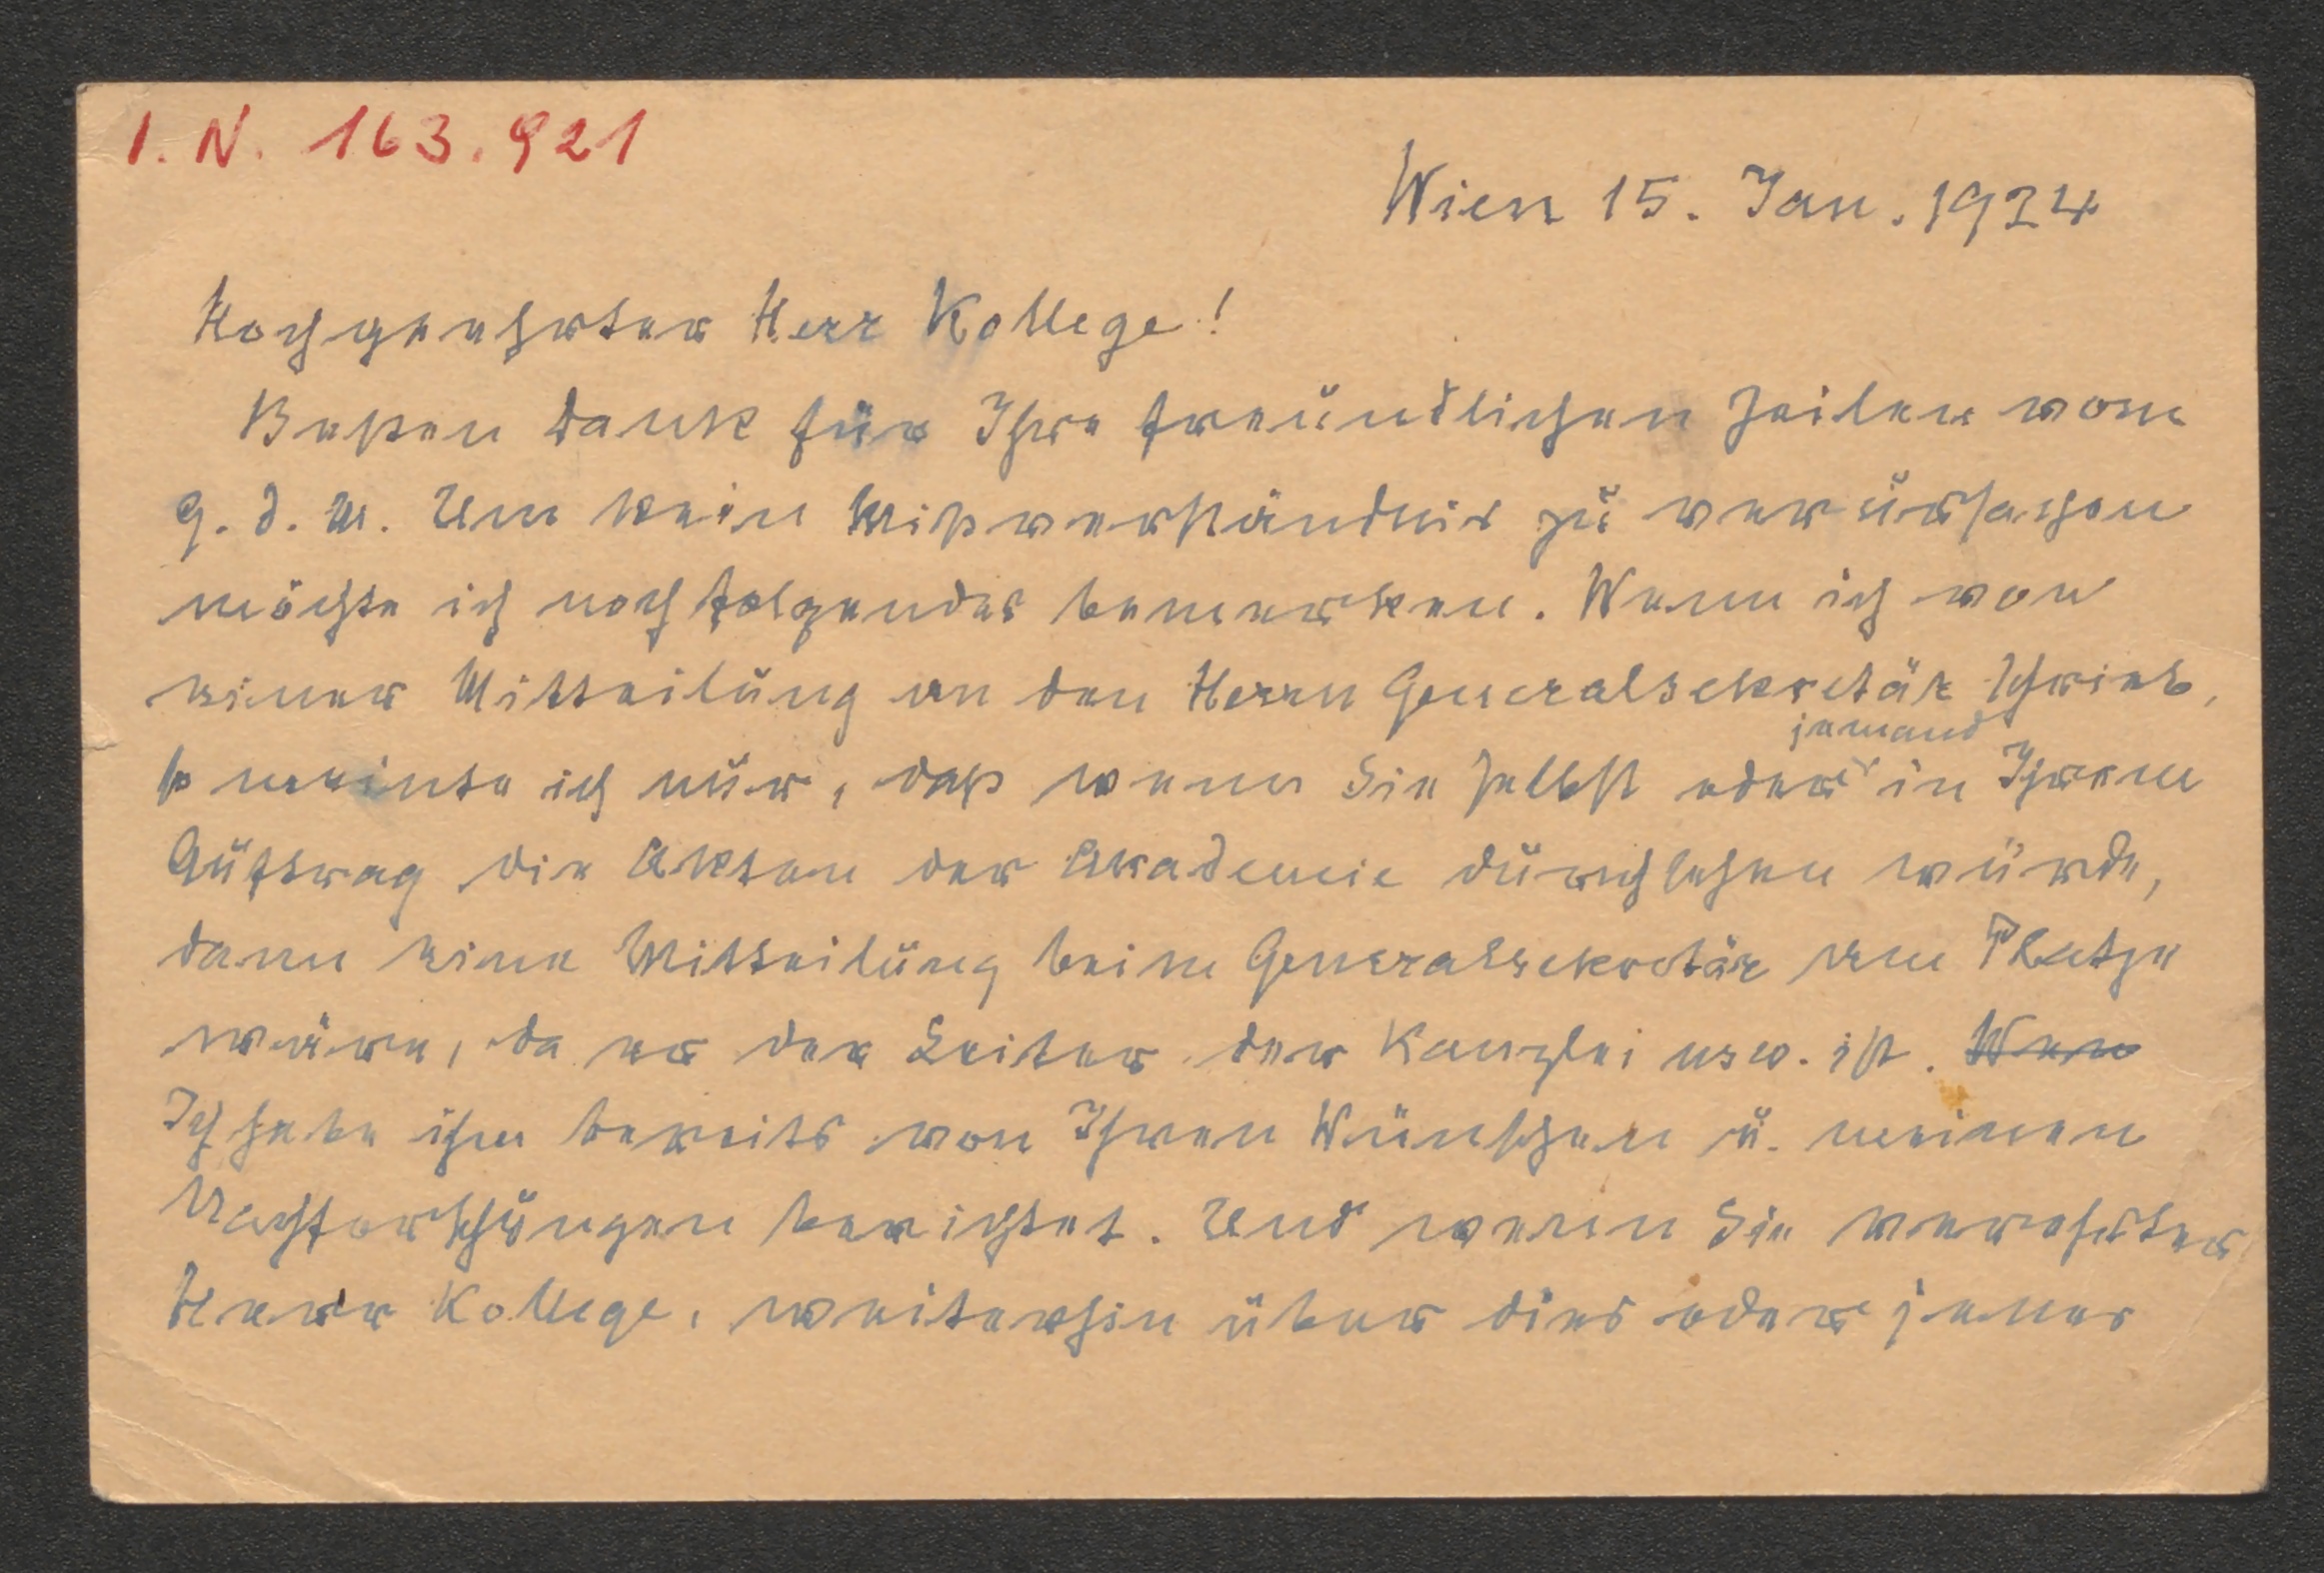 I. N. 163.921
Wien 15. Jan. 1924
Hochgeehrter Herr Kollege!
Besten Dank für Ihre freundlichen Zeilen vom
9. d. M. Um kein Mißverständnis zu verursachen
möchte ich noch folgendes bemerken. Wenn ich von
einer Mitteilung an den Herrn Generalsekretär schrieb,
jemand
so meinte ich nur, daß wenn Sie selbst oder in Ihrem
Auftrag die Akten der Akademie durchsehen würde,
dann eine Mitteilung beim Generalsekretär am Platze
wäre, da er der Leiter der Kanzlei usw. ist. Wen
Ich habe ihm bereits von Ihren Wünschen u. meinen
Nachforschungen berichtet. Und wenn Sie verehrter
Herr Kollege, weiterhin über dies oder jenes